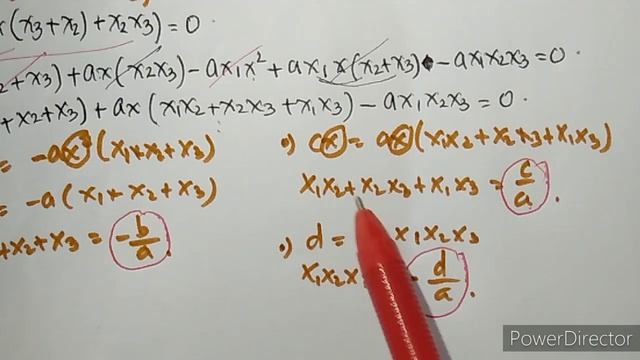 x(x₃+x₂)+x₂x₃)=0.
₂+x₃)+ax(x₂x₃)-ax₁x²+ax₁x(x₂+x₃)-ax₁x₂x₃=0.
+x₂+x₃)+ax(x₁x₂+x₂x₃+x₁x₃)-ax₁x₂x₃=0.
= -ax²(x₁+x₂+x₃)
= -a(x₁+x₂+x₃)
+x₂+x₃= -b/a.
•) cx= ax(x₁x₂+x₂x₃+x₁x₃)
x₁x₂+x₂x₃+x₁x₃= c/a.
•) d= x₁x₂x₃
x₁x₂x - d/a.
PowerDirector